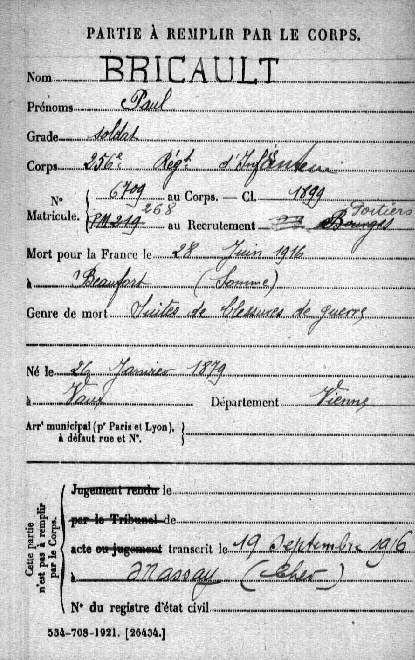 PARTIE À REMPLIR PAR LE CORPS.
Nom BRICAULT
Prénoms Paul
Grade soldat
Corps 256e Régt d'Infanterie
N° Matricule. { 6709 au Corps. — Cl. 1899
PM 219 268 au Recrutement Bourges Poitiers
Mort pour la France le 28 Juin 1916
à Beaufort (Somme)
Genre de mort Suites de blessures de guerre
Né le 24 Janvier 1879
à Vaux Département Vienne
Arrt municipal (pr Paris et Lyon), à défaut rue et N°. }
Cette partie n'est pas à remplir par le Corps.
Jugement rendu le
par le Tribunal de
acte ou jugement transcrit le 19 Septembre 1916
à Massay (Cher)
N° du registre d'état civil
534-708-1921. [26434.]